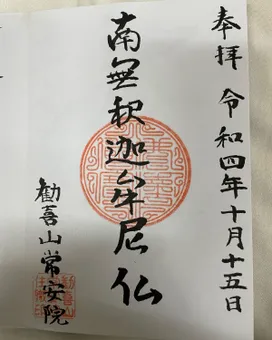 奉拝 令和四年十月十五日
南無釈迦牟尼仏
勸喜山常安院